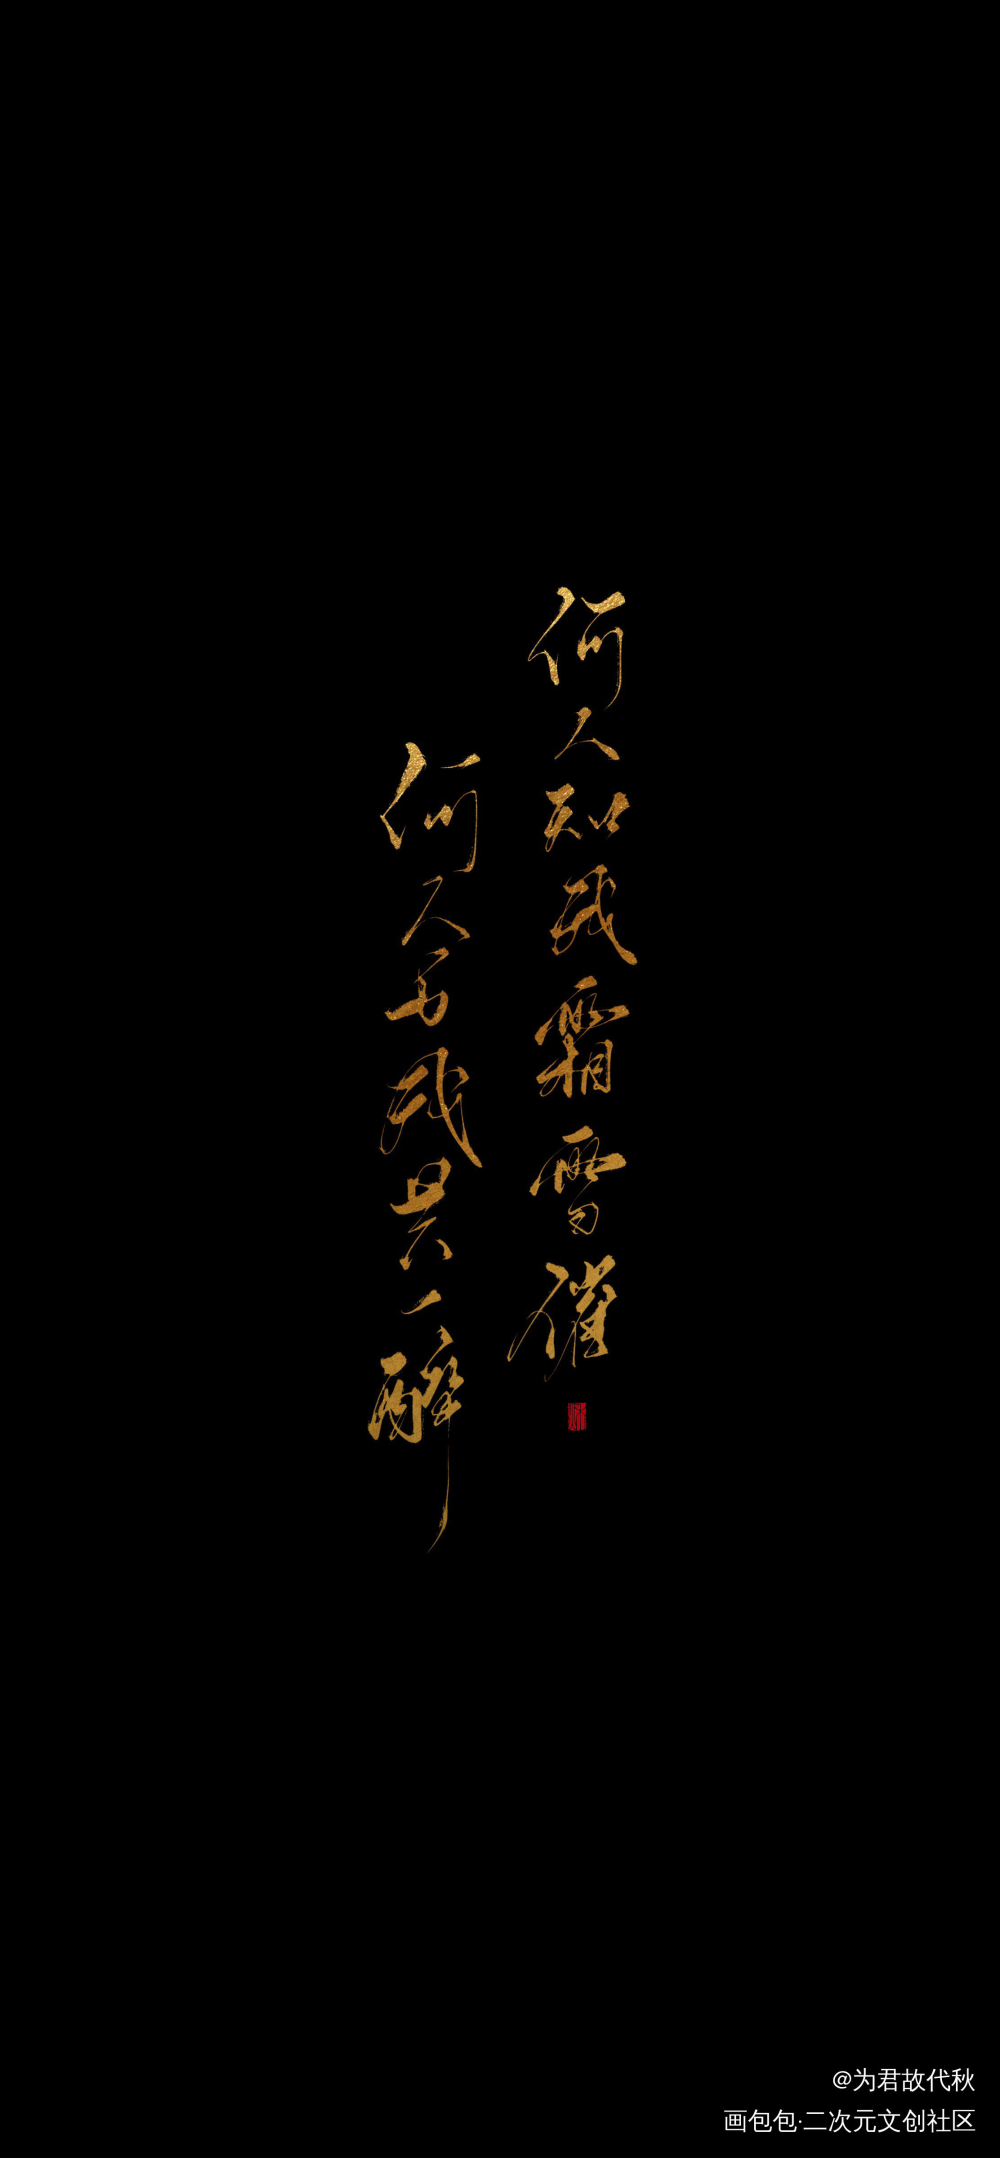 何人知我霜雪催
何人与我共一醉
@为君故代秋
画包包·二次元文创社区